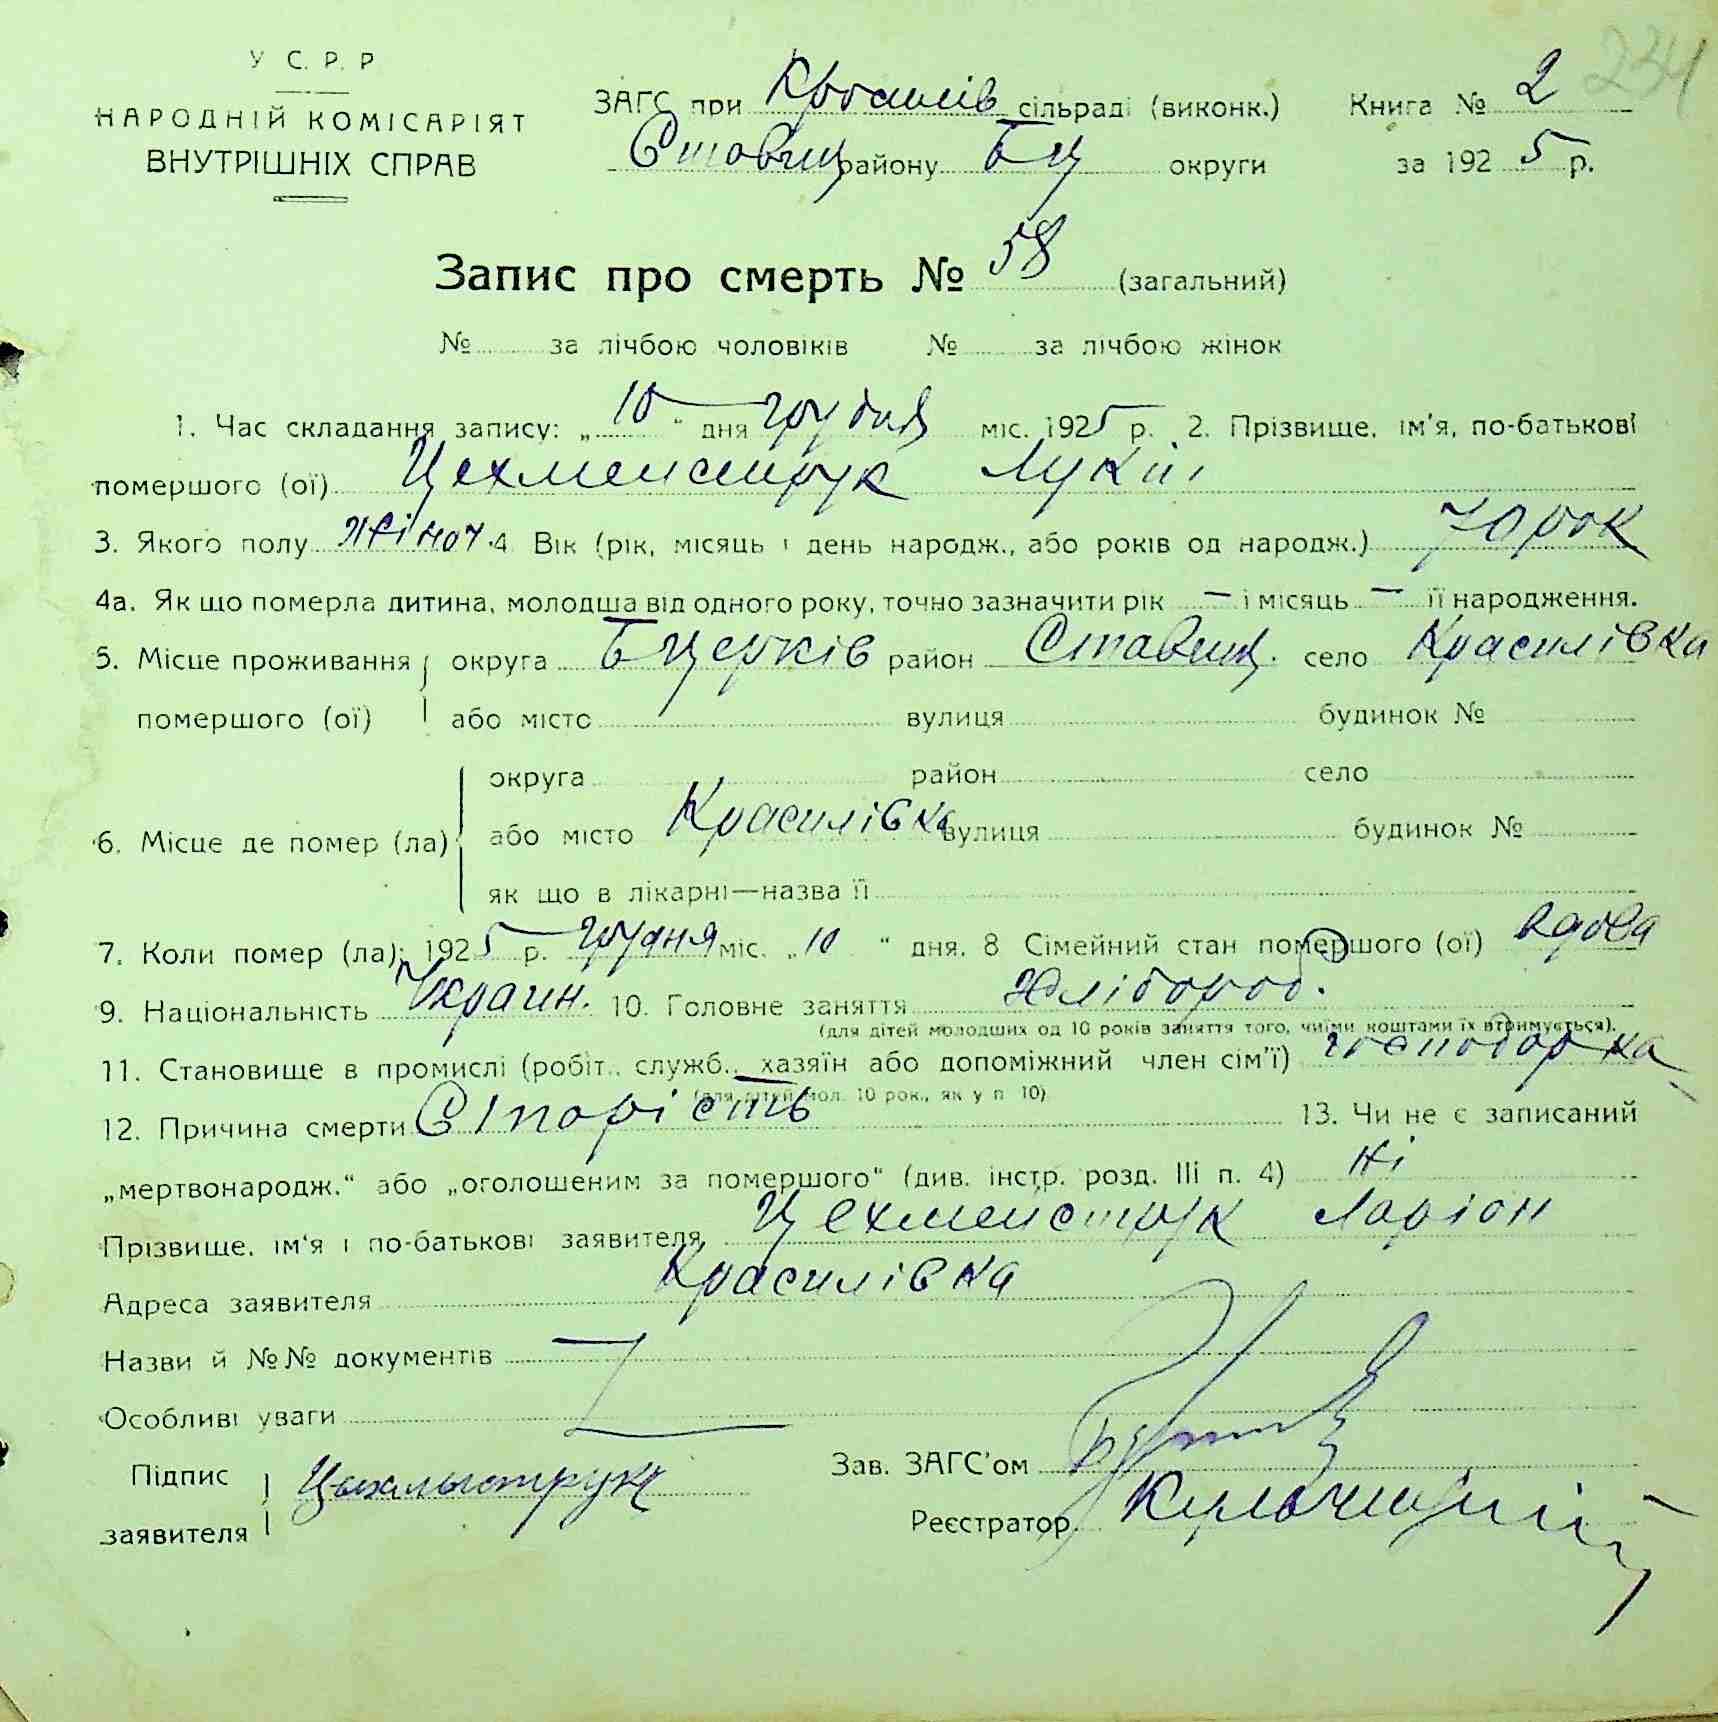 234
У С. Р. Р
НАРОДНІЙ КОМІСАРІЯТ
ВНУТРІШНІХ СПРАВ
ЗАГС при Красилів сільраді (виконк.) Книга № 2
Ставищ району Бц округи за 1925 р.
Запис про смерть № 58 (загальний)
№ за лічбою чоловіків № за лічбою жінок
1. Час складання запису: „10" дня грудня міс. 1925 р. 2. Прізвище, ім'я, по-батькові
помершого (ої) Цехмейструк Лукії
3. Якого полу жіноч. 4 Вік (рік, місяць і день народж., або років од народж.) 70 рок
4а. Як що померла дитина, молодша від одного року, точно зазначити рік — і місяць — її народження.
5. Місце проживання округа Бцерків район Ставищ. село Красилівка
помершого (ої) або місто вулиця будинок №
округа район село
6. Місце де помер (ла) або місто Красилівка вулиця будинок №
як що в лікарні—назва її
7. Коли помер (ла): 1925 р. грудня міс. „10" дня. 8 Сімейний стан помершого (ої) вдова
9. Національність Украин. 10. Головне заняття Хлібороб.
(для дітей молодших од 10 років заняття того, чиїми коштами їх втримується).
11. Становище в промислі (робіт., служб., хазяїн або допоміжний член сім'ї) господорка
(для дітей мол. 10 рок., як у п 10)
12. Причина смерти Старість 13. Чи не є записаний
„мертвонародж." або „оголошеним за помершого" (див. інстр. розд. III п. 4) Ні
Прізвище, ім'я і по-батькові заявителя Цехмейструк Ларіон
Адреса заявителя Красилівка
Назви й №№ документів
Особливі уваги
Підпис заявителя Цыхмыструк
Зав. ЗАГС'ом
Реєстратор Кульчицький